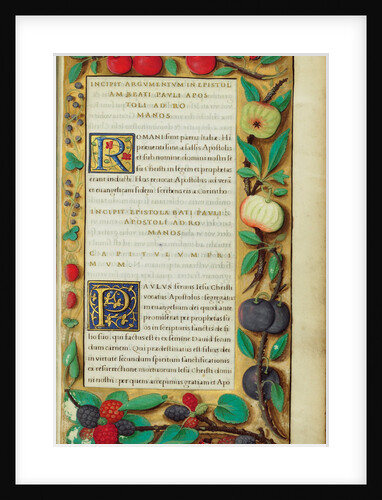 INCIPIT ARGVMENTVM IN EPISTOL
AM BEATI PAVLI APOS
TOLI AD RO
MANOS
ROMANI sunt partis italiae. Hi
preventi sunt a falsis Apostolis
et sub nomine domini nostri Ie
su Christi in legem et prophetas
erant inducti. Hos revocat Apostolus ad veram
et evangelicam fidem scribens eis a Corintho
INCIPIT EPISTOLA BATI PAVLI
APOSTOLI AD RO
MANOS
CAPITVLVM PRI
MVM
PAVLVS servus Iesu Christi
vocatus Apostolus segregatus
in evangelium dei quod ante
promiserat per prophetas su
os in scripturis sanctis de fi
lio suo qui factus est ei ex semine David secun
dum carnem. Qui praedestinatus est filius dei
in virtute secundum spiritum sanctificationis
ex resurrectione mortuorum Iesu Christi domi
ni nostri: per quem accepimus gratiam et Apo